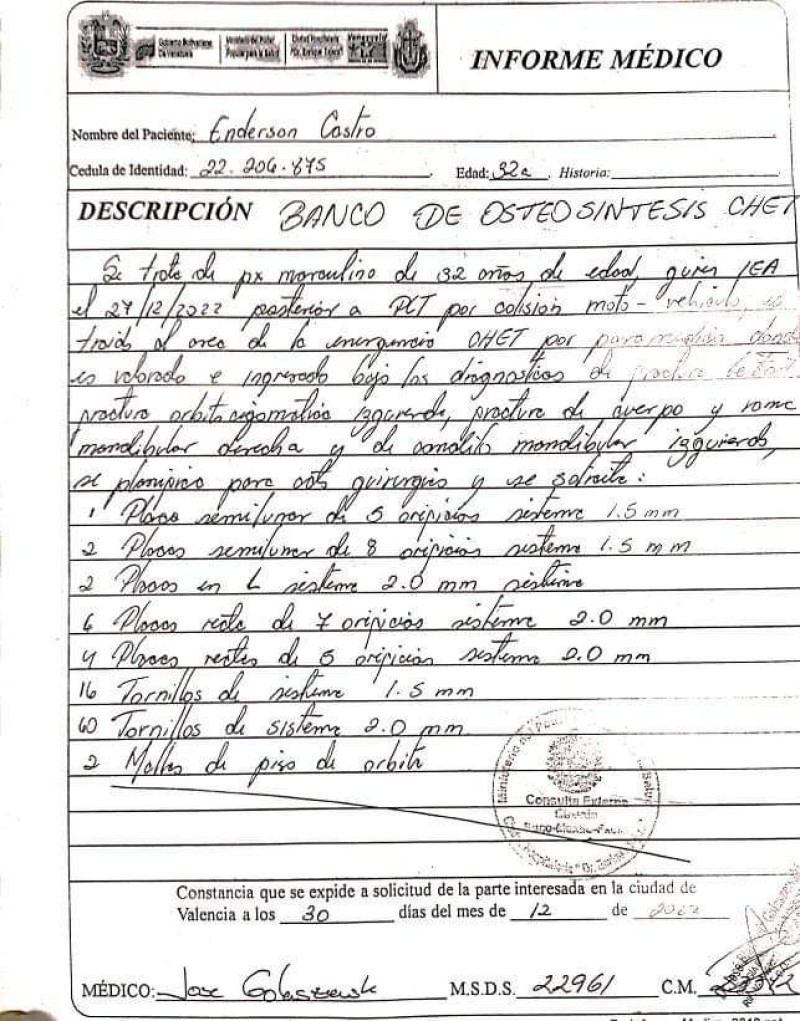 Gobierno Bolivariano de Venezuela
Ministerio del Poder Popular para la Salud
Ciudad Hospitalaria "Dr. Enrique Tejera"
INFORME MÉDICO
Nombre del Paciente: Enderson Castro
Cedula de Identidad: 22.206.875 Edad: 32a Historia:
DESCRIPCIÓN BANCO DE OSTEOSINTESIS CHET
Se trata de px masculino de 32 años de edad, quien IEA
el 27/12/2022 posterior a PCT por colisión moto-vehiculo, es
traido al area de la emergencia CHET por paramedicos donde
es valorado e ingresado bajo los diagnosticos de fractura
fractura orbito cigomatica izquierda, fractura de cuerpo y rama
mandibular derecha y de condilo mandibular izquierdo,
se planifica para acto quirurgico y se solicita:
1 Placa semilunar de 5 orificios sistema 1.5 mm
2 Placas semilunar de 8 orificios sistema 1.5 mm
2 Placas en L sistema 2.0 mm sistema
6 Placas recta de 7 orificios sistema 2.0 mm
4 Placas rectas de 5 orificios sistema 2.0 mm
16 Tornillos de sistema 1.5 mm
60 Tornillos de sistema 2.0 mm
2 Mallas de piso de orbita
Consulta Externa
Constancia que se expide a solicitud de la parte interesada en la ciudad de
Valencia a los 30 días del mes de 12 de 2022
MÉDICO: Jose M.S.D.S. 22961 C.M.